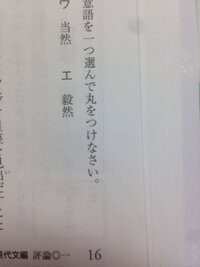 意語を一つ選んで丸をつけなさい。
ウ 当然 エ 毅然
現代文編 評論◎一 16